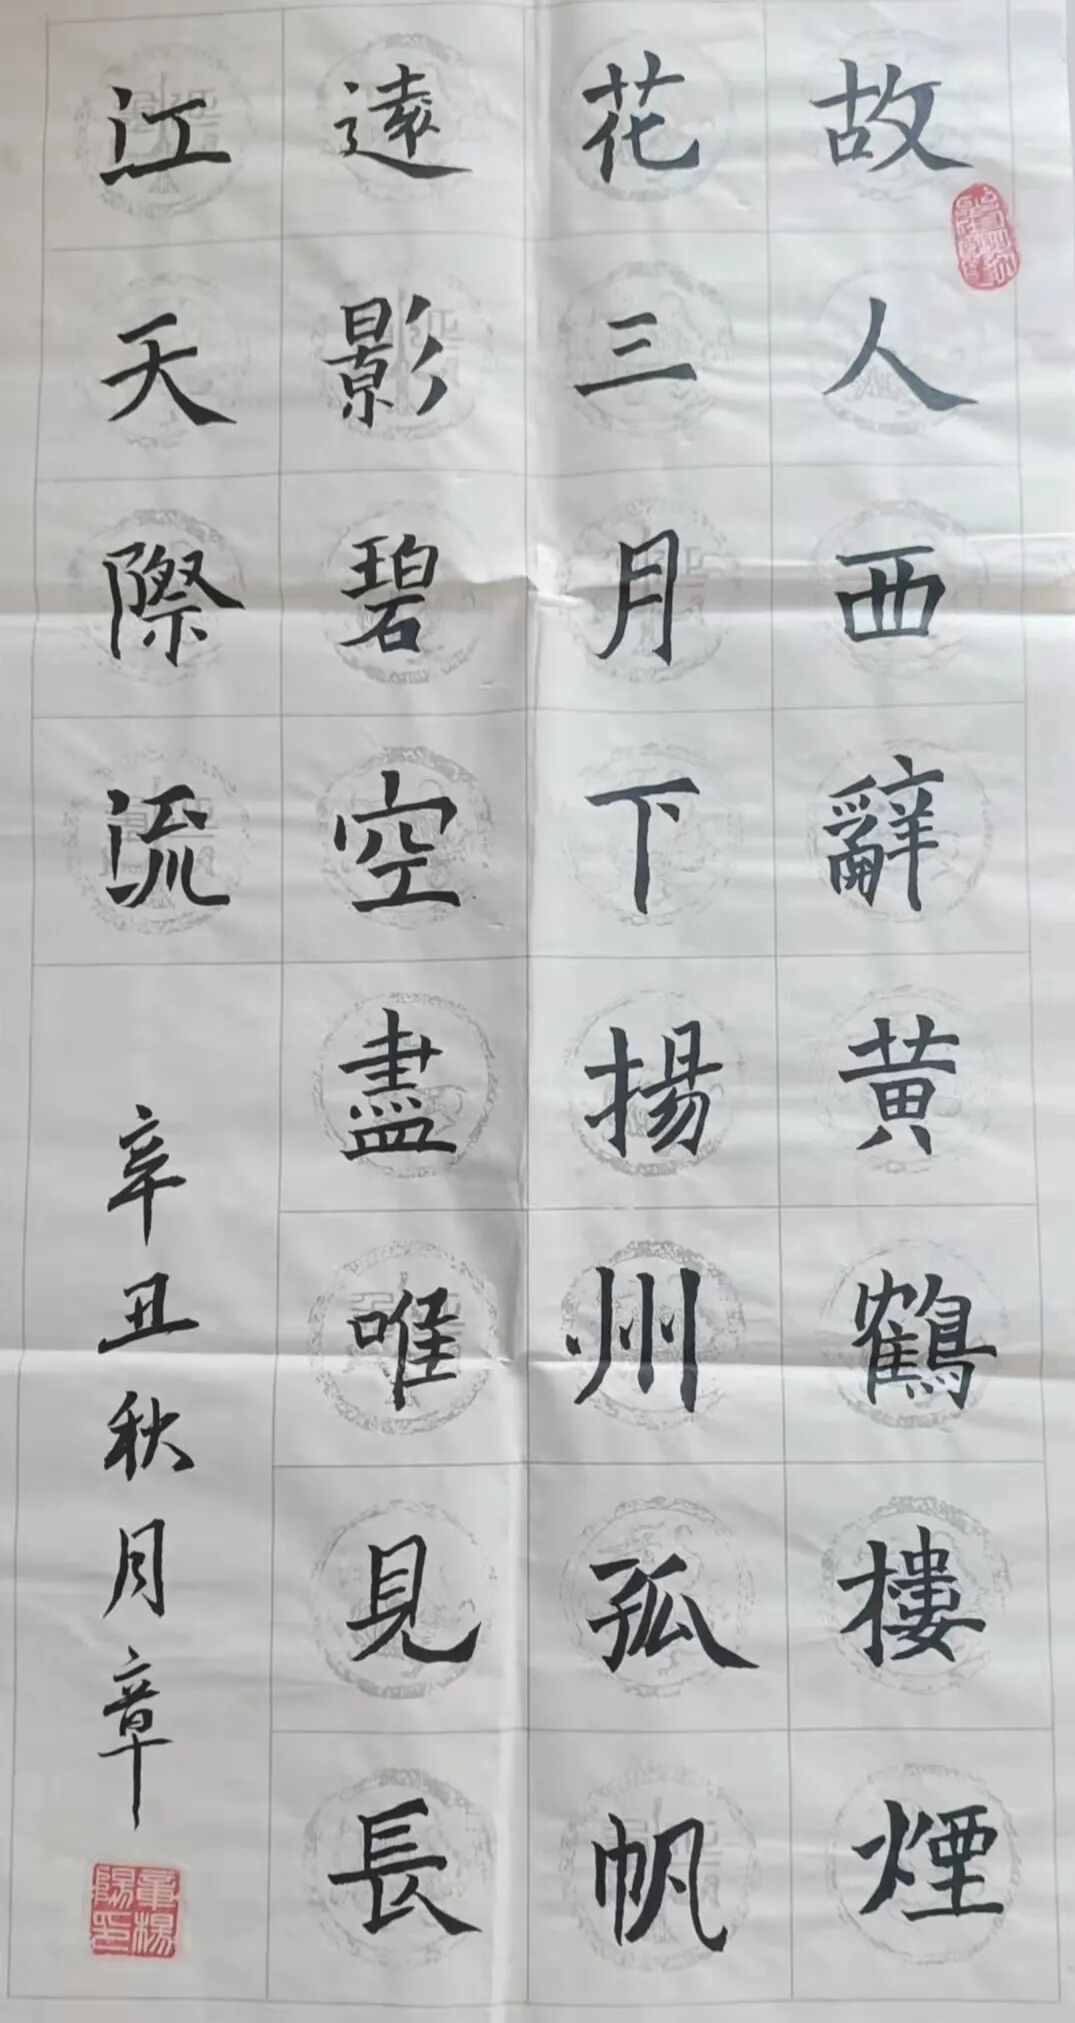 故人西辭黄鶴樓煙
花三月下揚州孤帆
遠影碧空盡唯見長
江天際流
辛丑秋月章